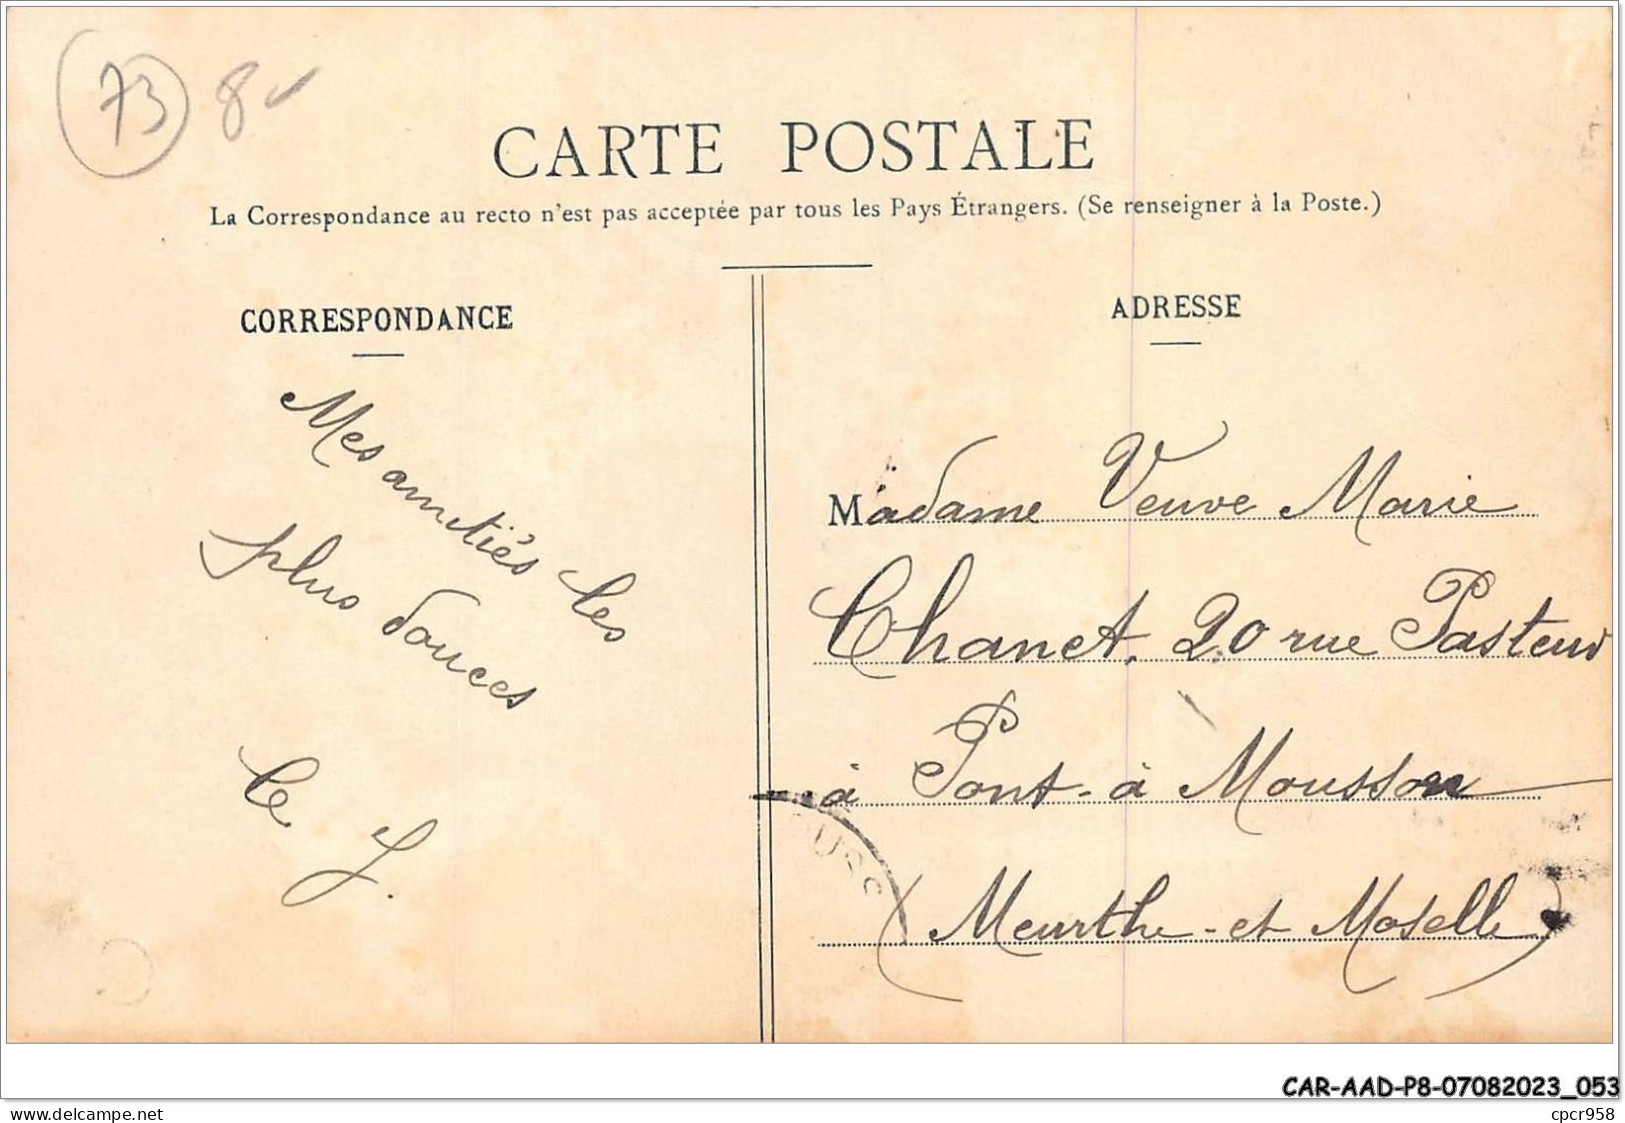 73 8
CARTE POSTALE
La Correspondance au recto n'est pas acceptée par tous les Pays Étrangers. (Se renseigner à la Poste.)
CORRESPONDANCE
Mes amitiés les
plus douces
ADRESSE
Madame Veuve Marie
Chanet, 20 rue Pasteur
à Pont-à Mousson
(Meurthe-et Moselle)
OUSS
CAR-AAD-P8-07082023_053
www.delcampe.net
cpcr958